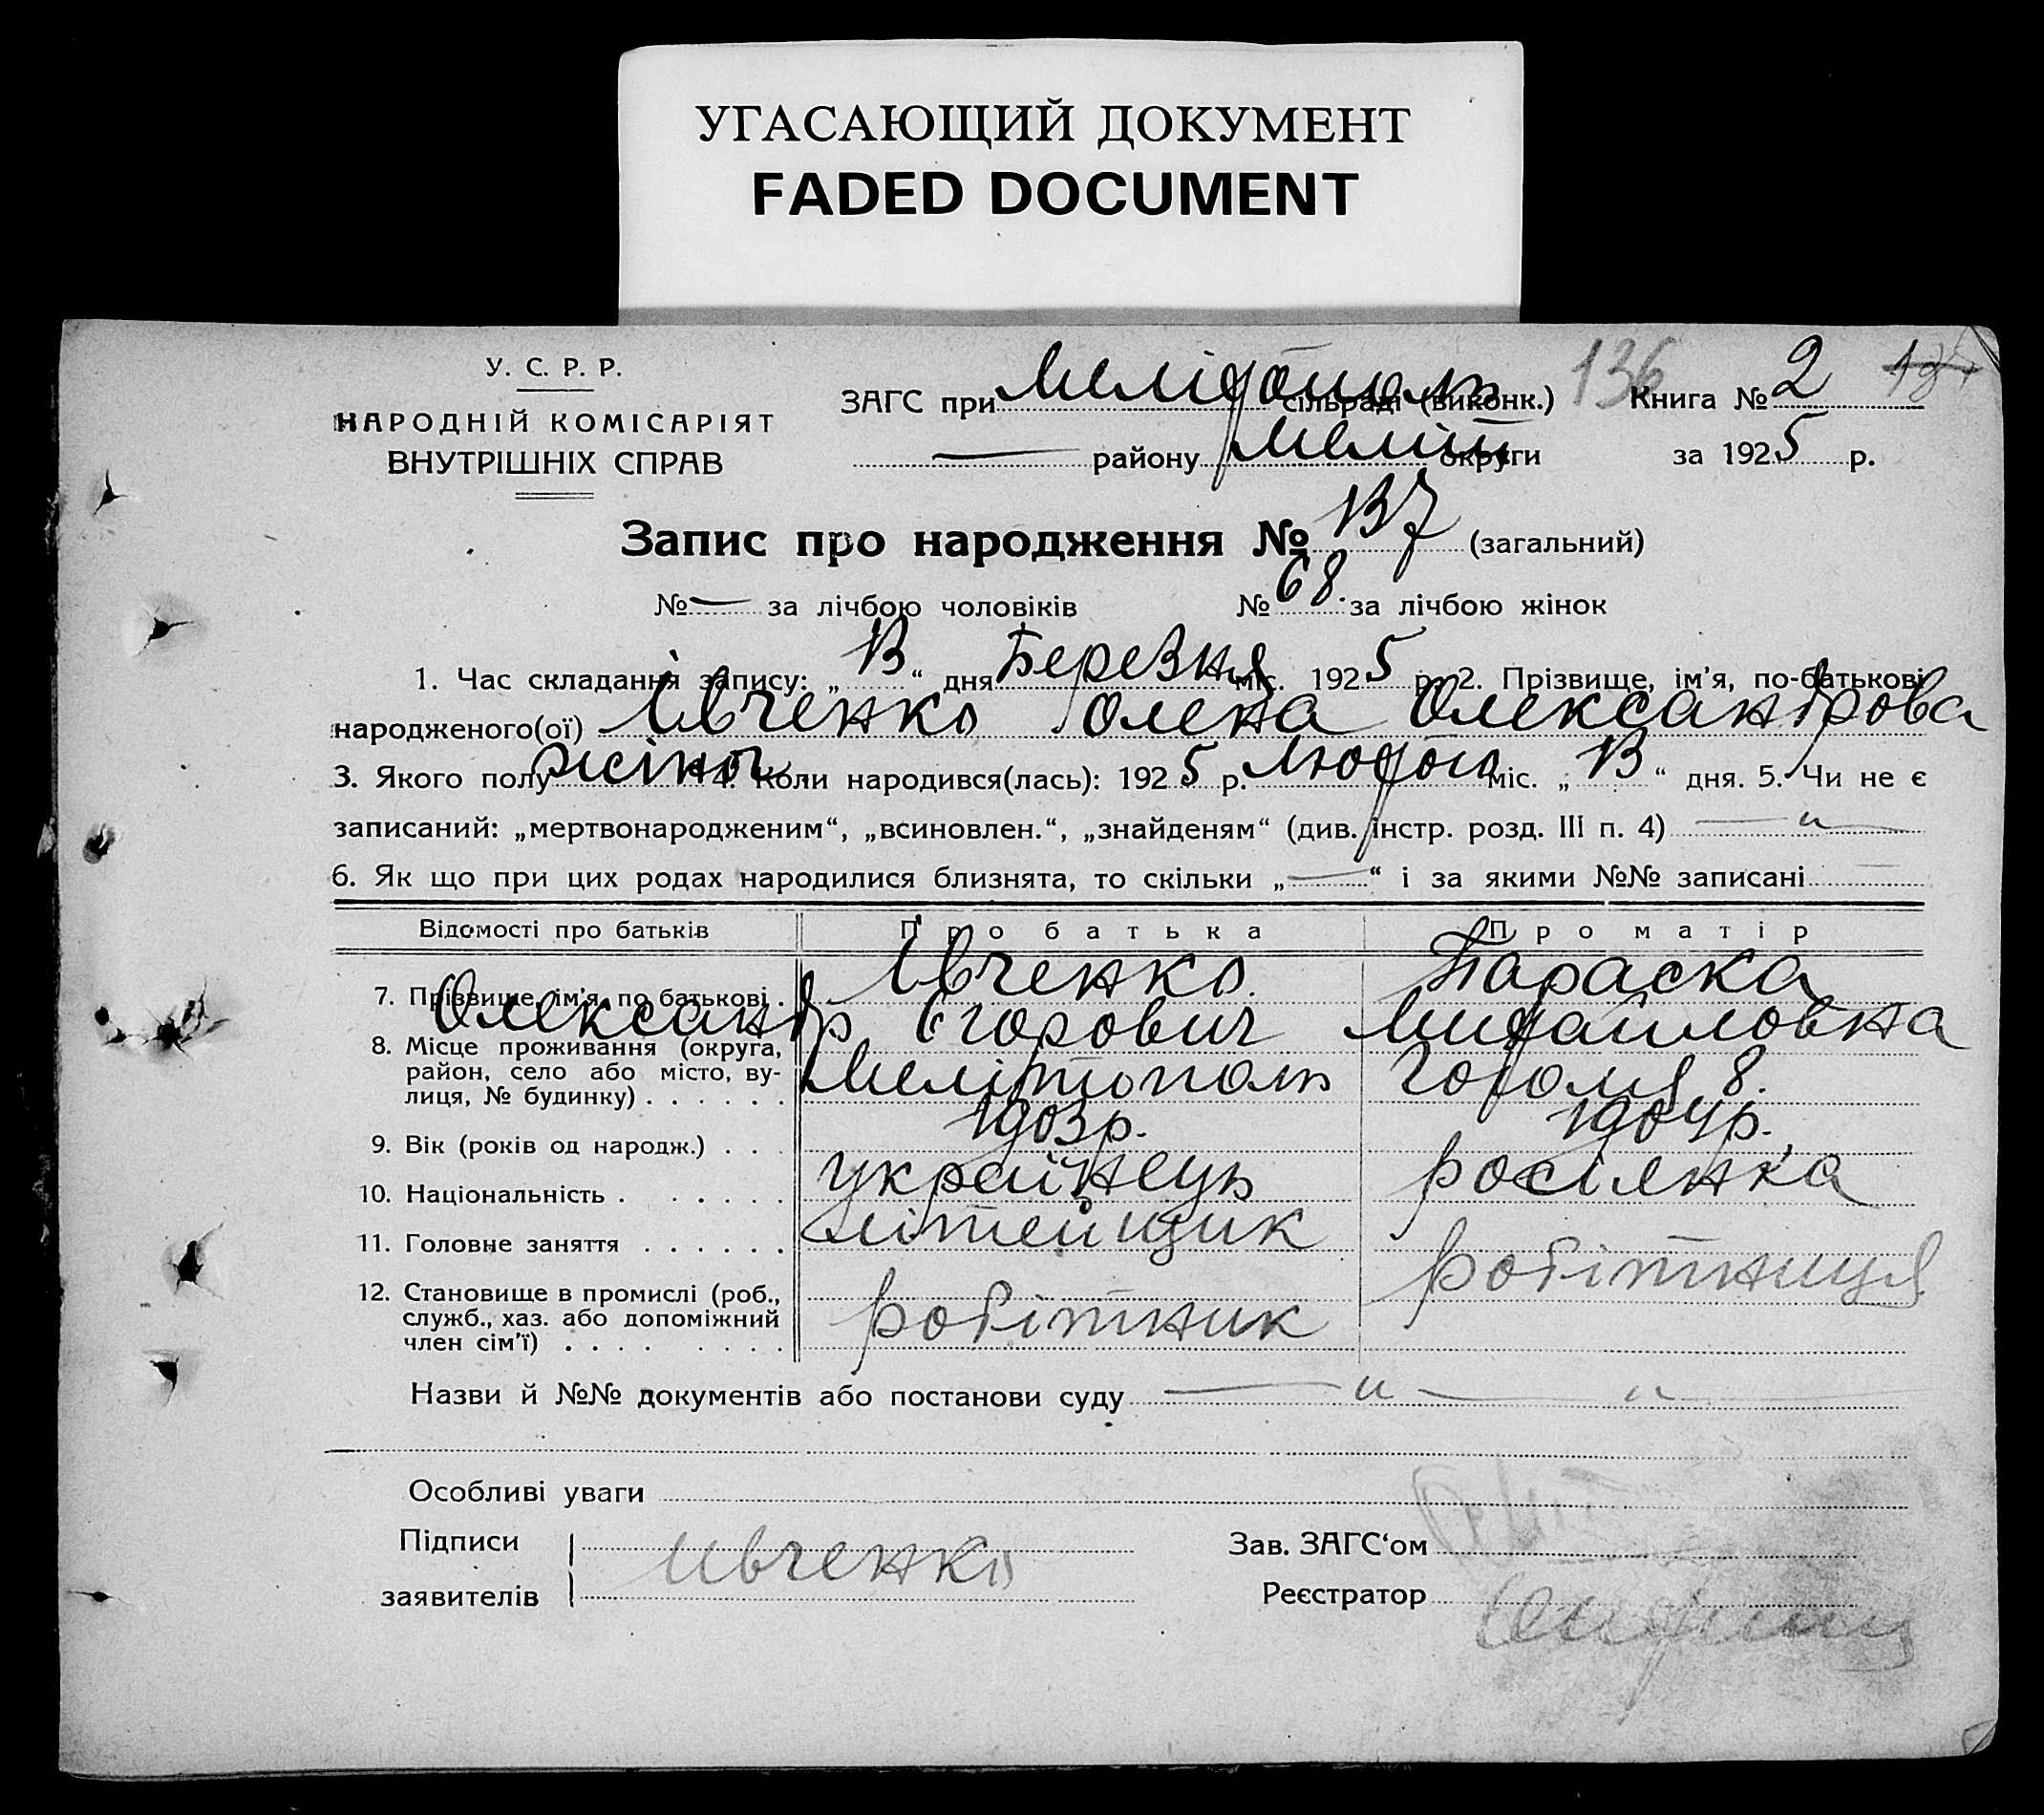 УГАСАЮЩИЙ ДОКУМЕНТ
FADED DOCUMENT
У. С. Р. Р.
НАРОДНІЙ КОМІСАРІЯТ
ВНУТРІШНІХ СПРАВ
ЗАГС при Мелітополь сільраді (виконк.) 136 Книга № 2
— району Меліт округи за 1925 р.
Запис про народження № 137 (загальний)
№ — за лічбою чоловіків № 68. за лічбою жінок
1. Час складання запису: „13“ дня Березня міс. 1925 р. 2. Прізвище, ім'я, по-батькові
народженого(ої) Івченко Олена Олександрова
3. Якого полу жіноч. 4. Коли народився(лась): 1925 р. Лютого міс. „13“ дня. 5. Чи не є
записаний: „мертвонародженим“, „всиновлен.“, „знайденям“ (див. інстр. розд. III п. 4) — „ —
6. Як що при цих родах народилися близнята, то скільки „—“ і за якими №№ записані
Відомості про батьків Про батька Про матір
7. Прізвище, ім'я, по батькові . Івченко Параска
Олександр Єгорович Михайловна
8. Місце проживання (округа, район, село або місто, вулиця, № будинку) . . . . . . Мелітополь Гоголя 8.
9. Вік (років од народж.) . . . 1903р. 1904р.
10. Національність . . . . . . українець росіянка
11. Головне заняття . . . . . . літейщик робітниця
12. Становище в промислі (роб., служб., хаз. або допоміжний член сім'ї) . . . . . . . . робітник
Назви й №№ документів або постанови суду — „ — „ —
Особливі уваги
Підписи
заявителів Ивченко
Зав. ЗАГС'ом
Реєстратор